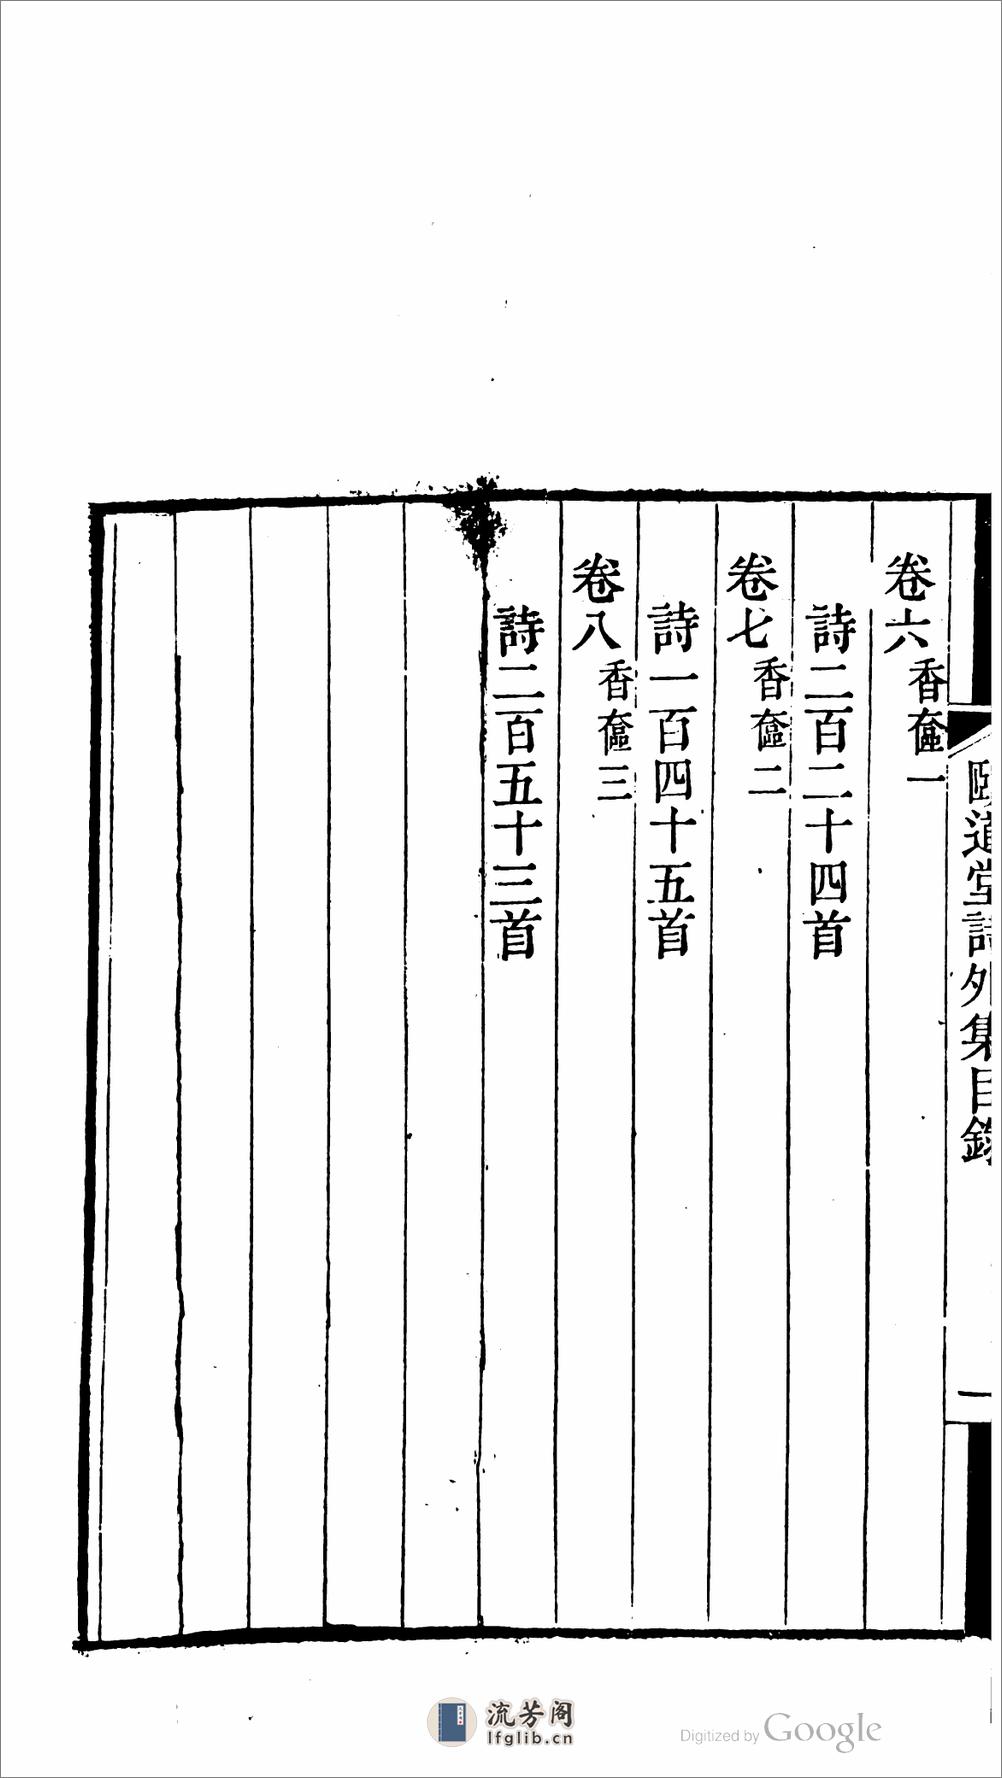 頤道堂詩外集目錄
一
卷六香奩一
詩二百二十四首
卷七香奩二
詩一百四十五首
卷八香奩三
詩二百五十三首
流芳阁
lfglib.cn
Digitized by Google